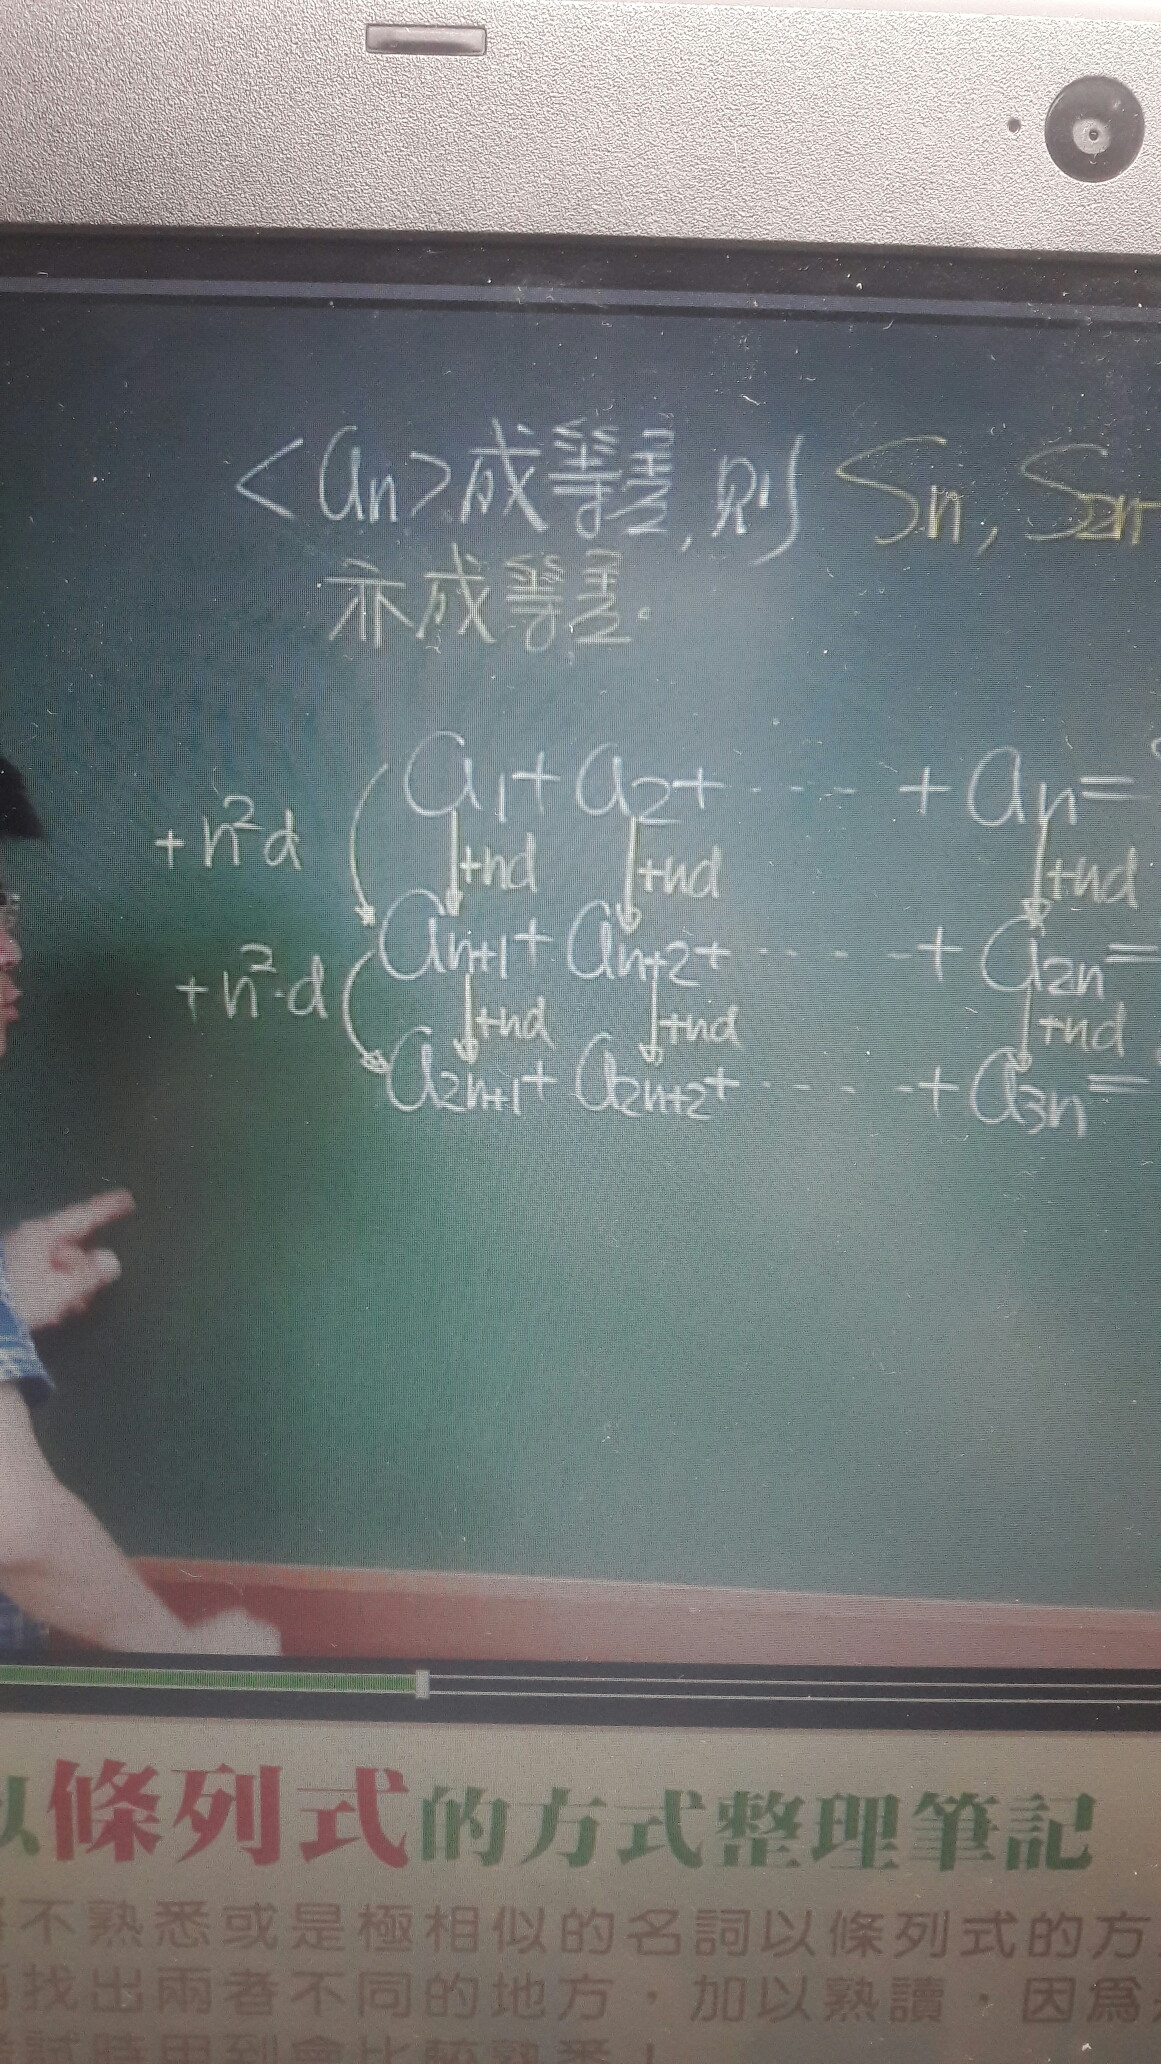 <an>成等差,則 Sn, S2n
亦成等差.
a1+a2+-----+an=
+n²d
+nd +nd +nd
an+1+an+2+-----+a2n=
+n²·d
+nd +nd +nd
a2n+1+a2n+2+-----+a3n=
以條列式的方式整理筆記
不熟悉或是極相似的名詞以條列式的方
找出兩者不同的地方，加以熟讀，因為
試時用到會比較熟悉！